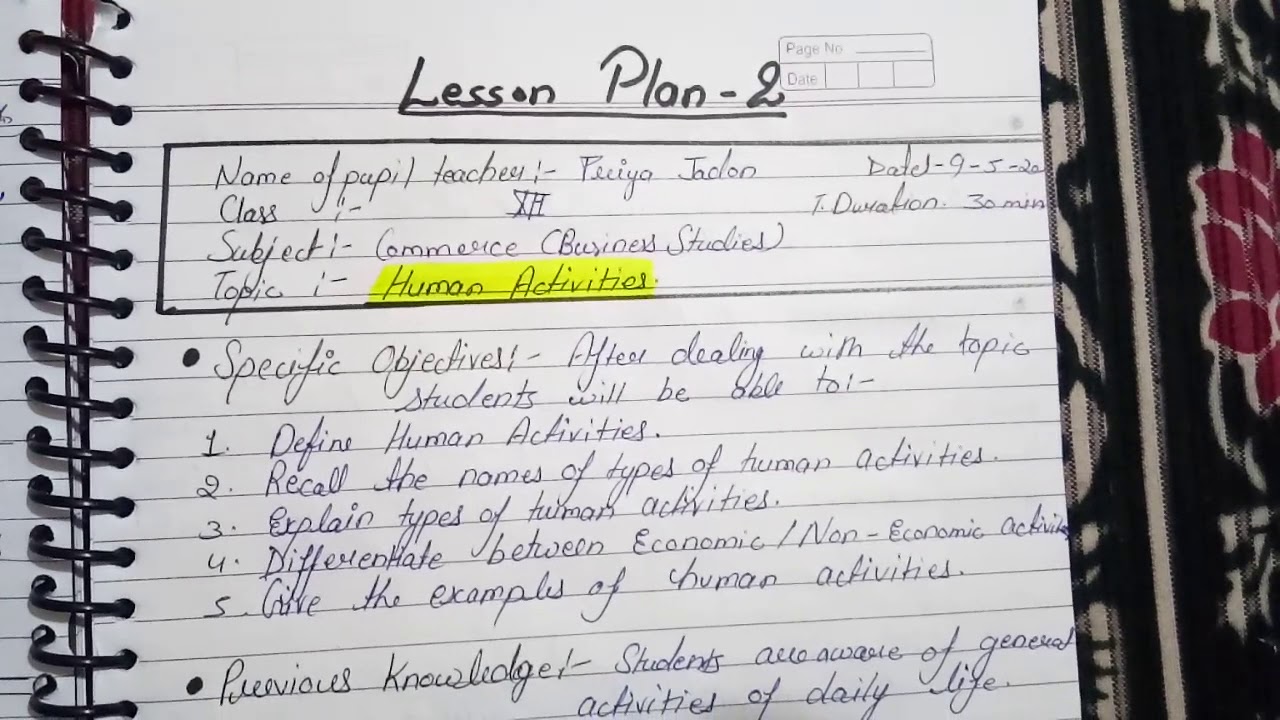 Page No
Date
Lesson Plan - 2
Name of pupil teacher :- Priya Jadon Date :- 9-5-20
Class :- XII T. Duration. 30 min
Subject :- Commerce (Business Studies)
Topic :- Human Activities.
• Specific Objectives :- After dealing with the topic
students will be able to :-
1. Define Human Activities.
2. Recall the names of types of human activities.
3. Explain types of human activities.
4. Differentiate between Economic / Non-Economic activi
5. Give the examples of human activities.
• Previous Knowledge :- Students are aware of general
activities of daily life.